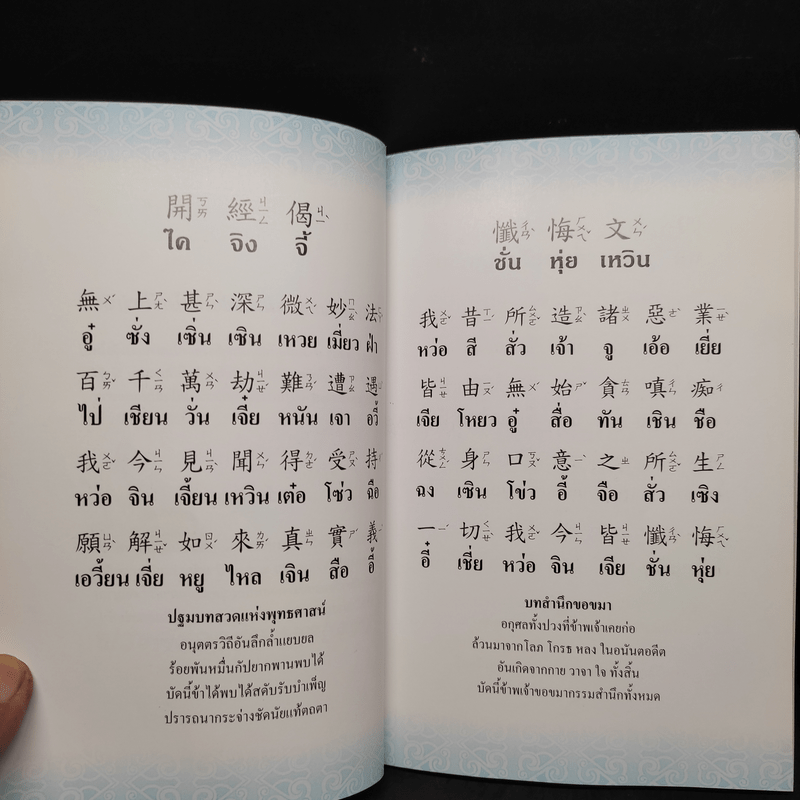 開ㄎㄞ 經ㄐㄧㄥ 偈ㄐㄧˋ
ไค จิง จี้
無ㄨˊ 上ㄕㄤˋ 甚ㄕㄣˋ 深ㄕㄣ 微ㄨㄟˊ 妙ㄇㄧㄠˋ 法
อู๋ ซั่ง เซิ่น เซิน เหวย เมี่ยว ฝ่า
百ㄅㄞˇ 千ㄑㄧㄢ 萬ㄨㄢˋ 劫ㄐㄧㄝˊ 難ㄋㄢˊ 遭ㄗㄠ 遇
ไป่ เชียน วั่น เจี๋ย หนัน เจา อวี้
我ㄨㄛˇ 今ㄐㄧㄣ 見ㄐㄧㄢˋ 聞ㄨㄣˊ 得ㄉㄜˊ 受ㄕㄡˋ 持
หว่อ จิน เจี้ยน เหวิน เต๋อ โซ่ว ฉือ
願ㄩㄢˋ 解ㄐㄧㄝˇ 如ㄖㄨˊ 來ㄌㄞˊ 真ㄓㄣ 實ㄕˊ 義
เอวี้ยน เจี่ย หยู ไหล เจิน สือ อี้
ปฐมบทสวดแห่งพุทธศาสน์
อนุตตรวิถีอันลึกล้ำแยบยล
ร้อยพันหมื่นกัปยากพานพบได้
บัดนี้ข้าได้พบได้สดับรับบำเพ็ญ
ปรารถนากระจ่างชัดนัยแท้ตถตา
懺ㄔㄢˋ 悔ㄏㄨㄟˇ 文ㄨㄣˊ
ชั่น หุ่ย เหวิน
我ㄨㄛˇ 昔ㄒㄧˊ 所ㄙㄨㄛˇ 造ㄗㄠˋ 諸ㄓㄨ 惡ㄜˋ 業ㄧㄝˋ
หว่อ สี สั่ว เจ้า จู เอ้อ เยี่ย
皆ㄐㄧㄝ 由ㄧㄡˊ 無ㄨˊ 始ㄕˇ 貪ㄊㄢ 嗔ㄔㄣ 痴ㄔ
เจีย โหยว อู๋ สื่อ ทัน เชิน ชือ
從ㄘㄨㄥˊ 身ㄕㄣ 口ㄎㄡˇ 意ㄧˋ 之ㄓ 所ㄙㄨㄛˇ 生ㄕㄥ
ฉง เซิน โข่ว อี้ จือ สั่ว เซิง
一ㄧ 切ㄑㄧㄝˋ 我ㄨㄛˇ 今ㄐㄧㄣ 皆ㄐㄧㄝ 懺ㄔㄢˋ 悔ㄏㄨㄟˇ
อี๋ เชี่ย หว่อ จิน เจีย ชั่น หุ่ย
บทสำนึกขอขมา
อกุศลทั้งปวงที่ข้าพเจ้าเคยก่อ
ล้วนมาจากโลภ โกรธ หลง ในอนันตอดีต
อันเกิดจากกาย วาจา ใจ ทั้งสิ้น
บัดนี้ข้าพเจ้าขอขมากรรมสำนึกทั้งหมด